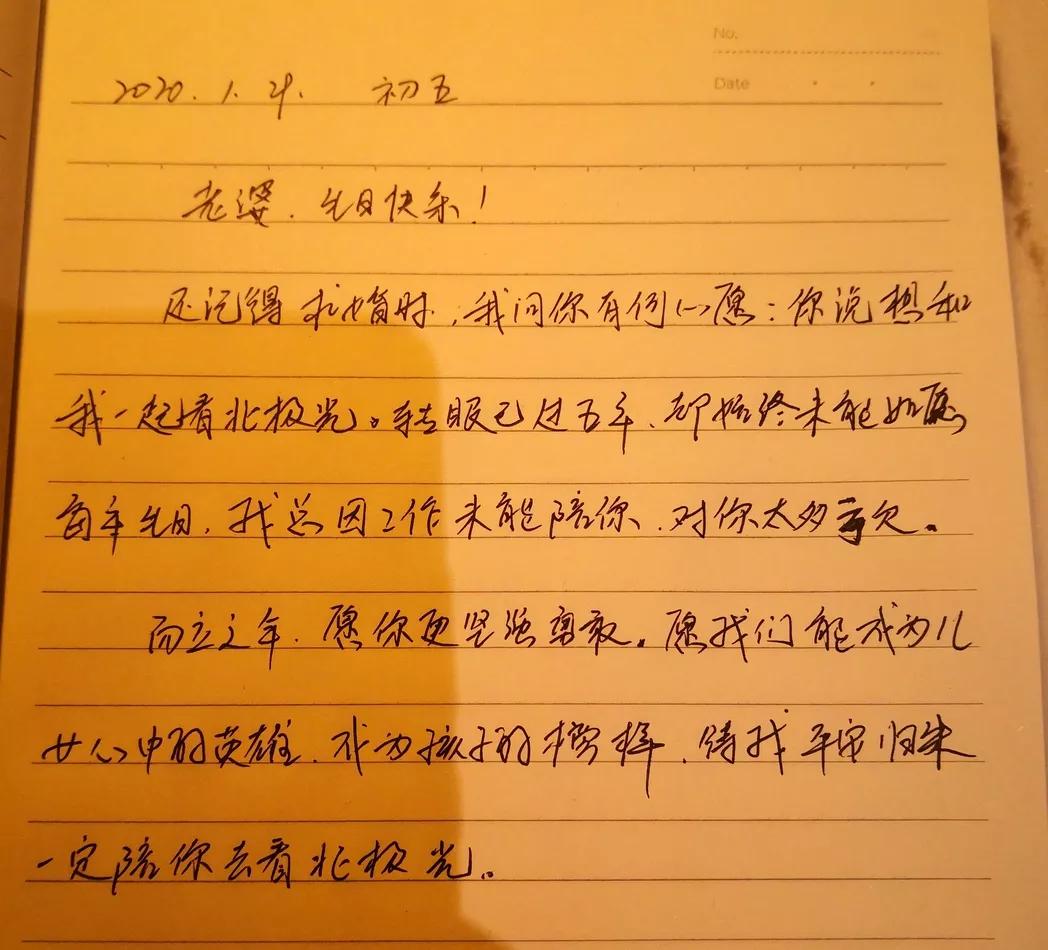 No.
Date
2020.1.29. 初五
老婆.生日快乐!
还记得求婚时,我问你有何心愿:你说想和
我一起看北极光。转眼已过五年、却始终未能如愿,
每年生日,我总因工作未能陪你、对你太多亏欠。
而立之年、愿你更坚强勇敢。愿我们能成为儿
女心中的英雄、成为孩子的榜样、待我平安归来
一定陪你去看北极光。